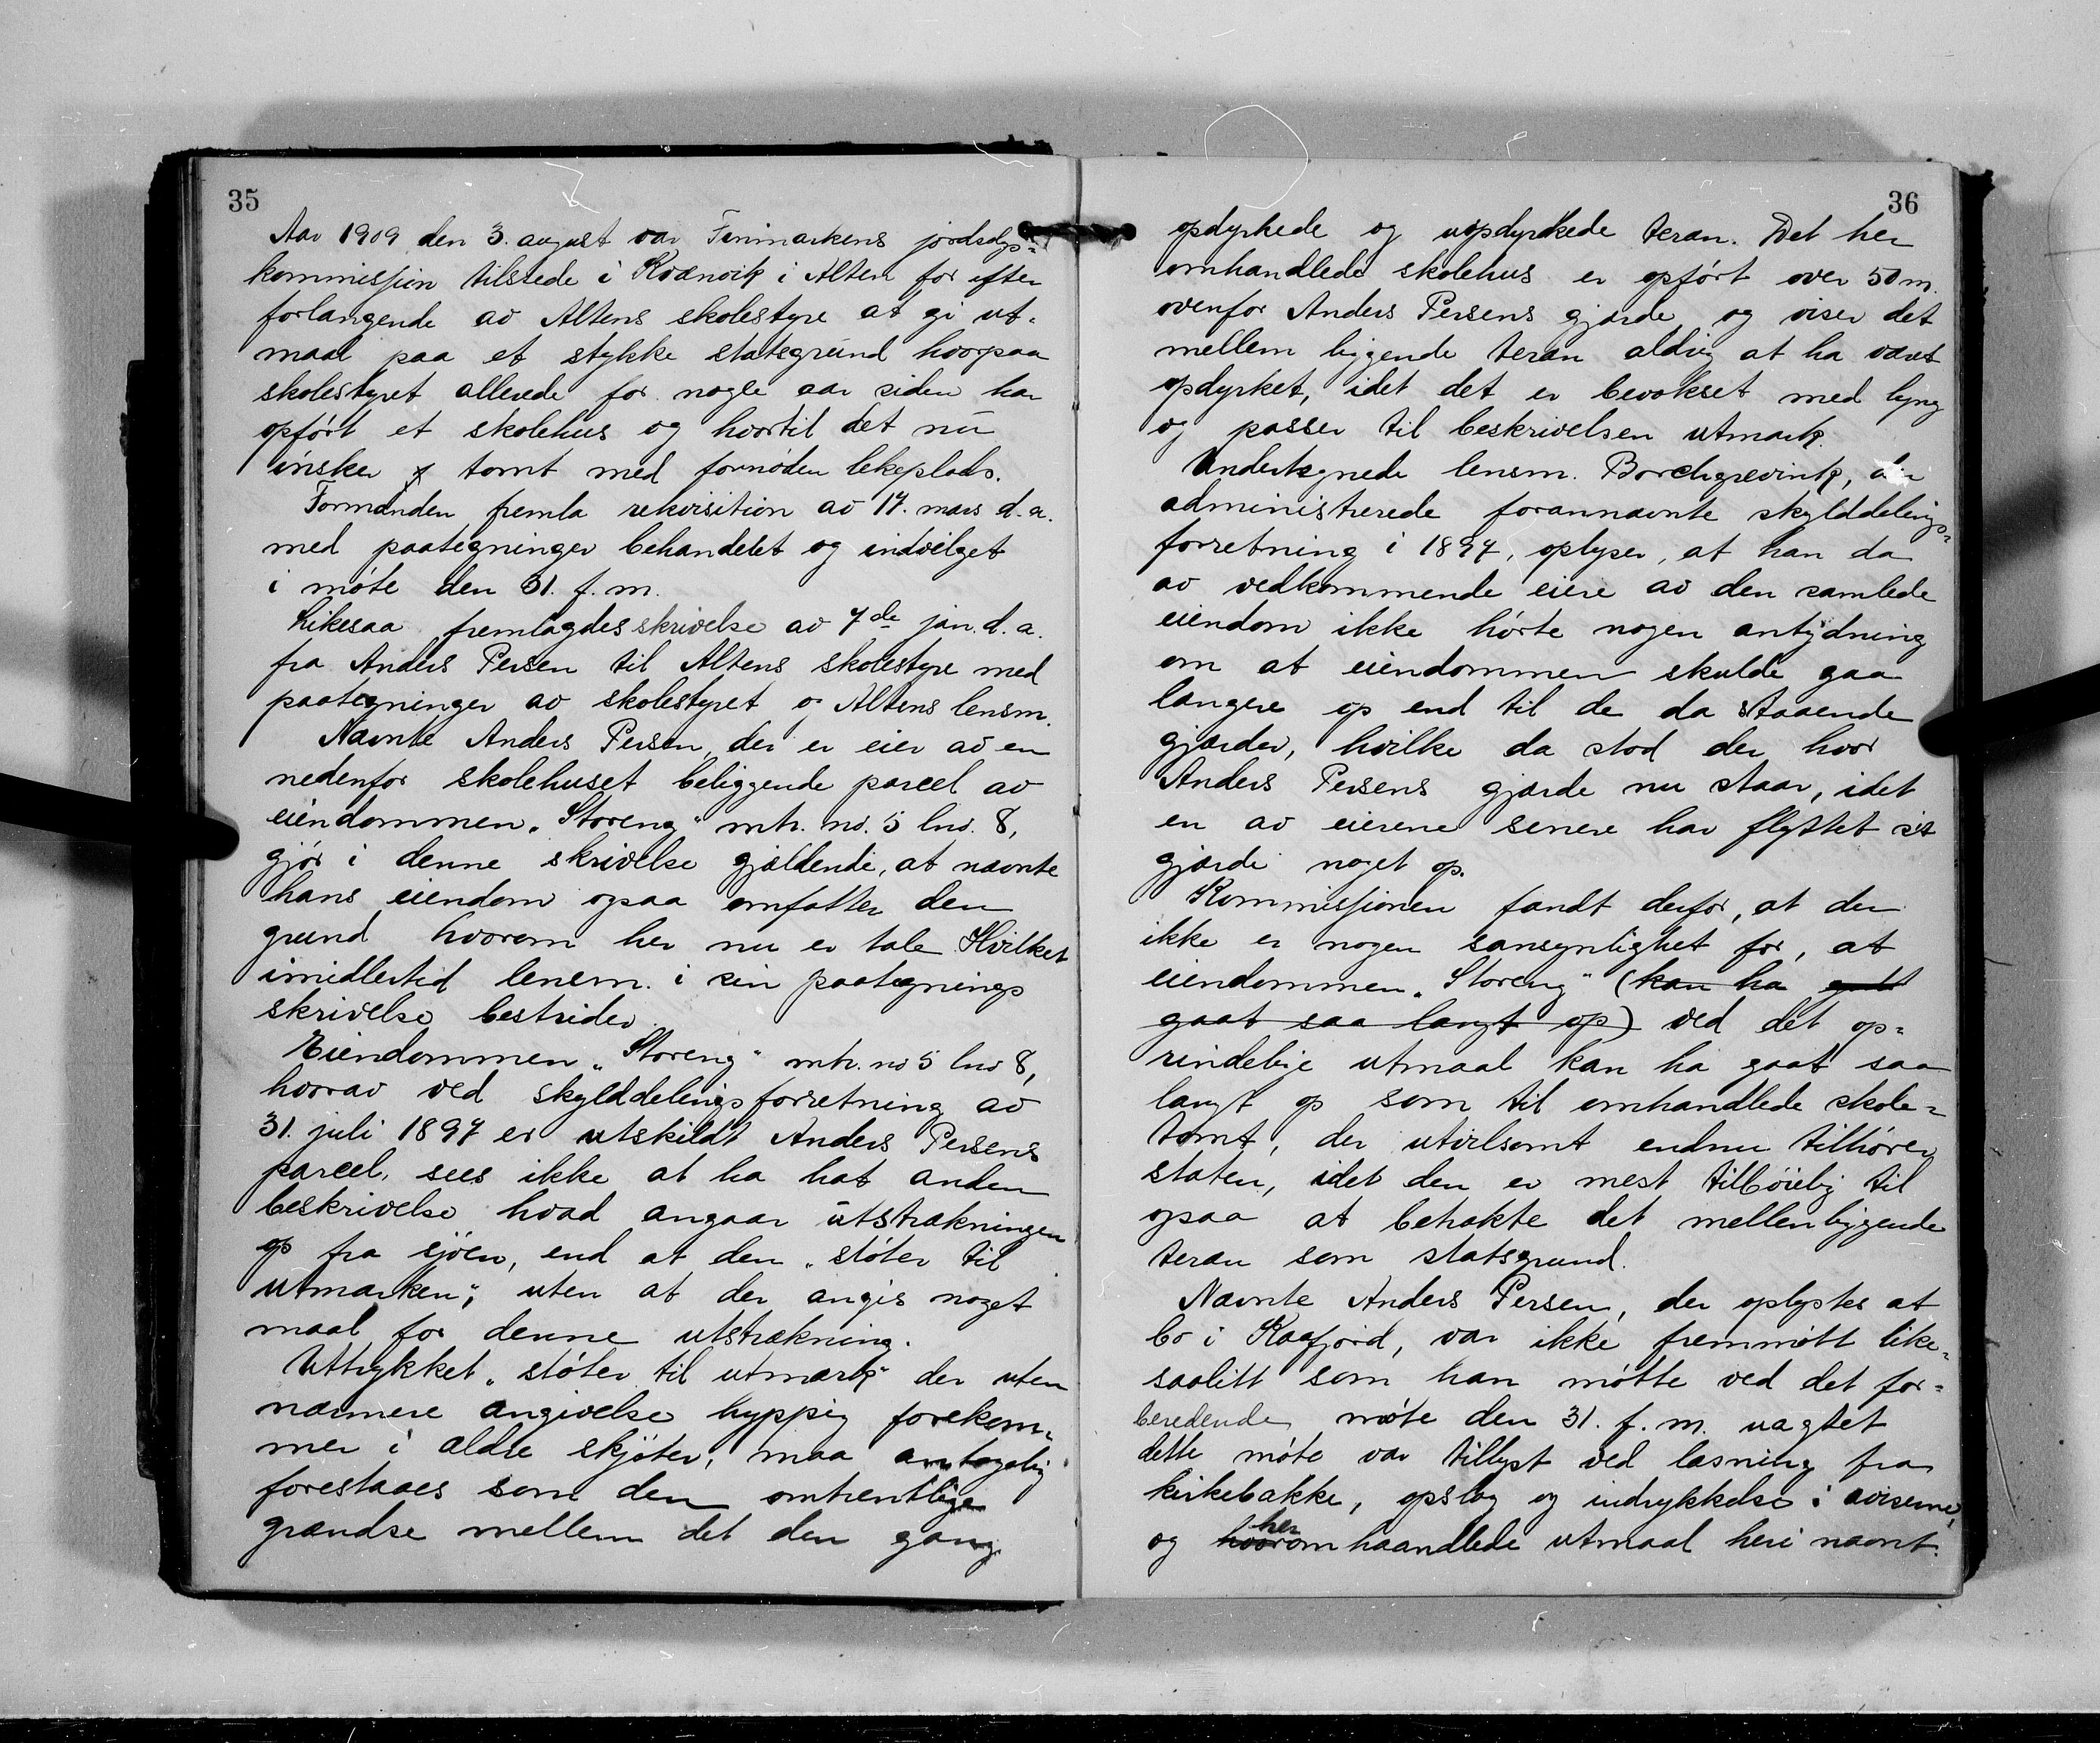 35
Aar 1909 den 3. august var Finmarkens jordsalgs-
kommissjon tilstede i Kvænvik i Alten for efter
forlangende av Altens skolestyre at gi ut-
maal paa et stykke statsgrund hvorpaa
skolestyret allerede for nogle aar siden har
opført et skolehus og hvortil det nu
ønsker tomt med fornøden lekeplads.
Formanden fremla rekvisition av 17. mars d.a.
med paategninger behandelet og indvilget
i møte den 31. f.m.
Likesaa fremlagdes skrivelse av 7de jan. d.a.
fra Anders Persen til Altens skolestyre med
paategninger av skolestyret og Altens lensm.
Nævnte Anders Persen, der er eier av en
nedenfor skolehuset beliggende parcel av
eiendommen „Storeng" mtr. no. 5 lno. 8,
gjør i denne skrivelse gjældende, at nævnte
hans eiendom ogsaa omfatter den
grund hvorom her nu er tale Hvilket
imidlertid lensm. i sin paategnings
skrivelse bestrider.
Eiendommen „Storeng" mtr. no 5 lno 8,
hvorav ved skylddelingsforretning av
31. juli 1897 er utskildt Anders Persens
parcel, sees ikke at ha hat anden
beskrivelse hvad angaar utstrækningen
op fra sjøen, end at den „støter til
utmarken"; uten at der angis noget
maal for denne utstrækning.
Uttrykket „støter til utmark" der uten
nærmere angivelse hyppig forekom-
mer i ældre skjøter, maa antagelig
forestaaes som den omtrentlige
grændse mellem det den gang
36
opdyrkede og uopdyrkede teræn. Det her
omhandlede skolehus er opført over 50 m.
ovenfor Anders Persens gjærde og viser det
mellem liggende teræn aldrig at ha været
opdyrket, idet det er bevokset med lyng
og passer til beskrivelsen utmark.
Undertegnede lensm. Borchgrevink, der
administrerede forannævnte skylddelings-
forretning i 1897, oplyser, at han da
av vedkommende eiere av den samlede
eiendom ikke hørte nogen antydning
om at eiendommen skulde gaa
længere op end til de da staaende
gjærder, hvilke da stod der hvor
Anders Persens gjærde nu staar, idet
en av eierene senere har flyttet sit
gjærde noget op.
Kommissjonen fandt derfor, at der
ikke er nogen sansynlighet for, at
eiendommen „Storeng" (kan ha
gaat saa langt op) ved det op-
rindelige utmaal kan ha gaat saa
langt op som til omhandlede skole-
tomt, der utvilsomt endnu tilhører
staten, idet den er mest tilbøielig til
ogsaa at betrakte det mellemliggende
teræn som statsgrund.
Nævnte Anders Persen, der oplystes at
bo i Kaafjord, var ikke fremmøtt like-
saalitt som han møtte ved det for-
beredende møte den 31. f.m. uagtet
dette møte var tillyst ved læsning fra
kirkebakke, opslag og indrykkelse i aviserne,
og hvorom her haandlede utmaal heri nævnt.